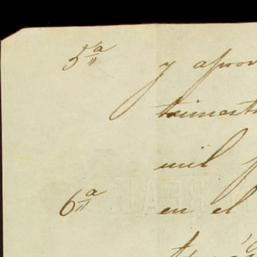 5ª y apro
trimestr
mil f
6ª en el